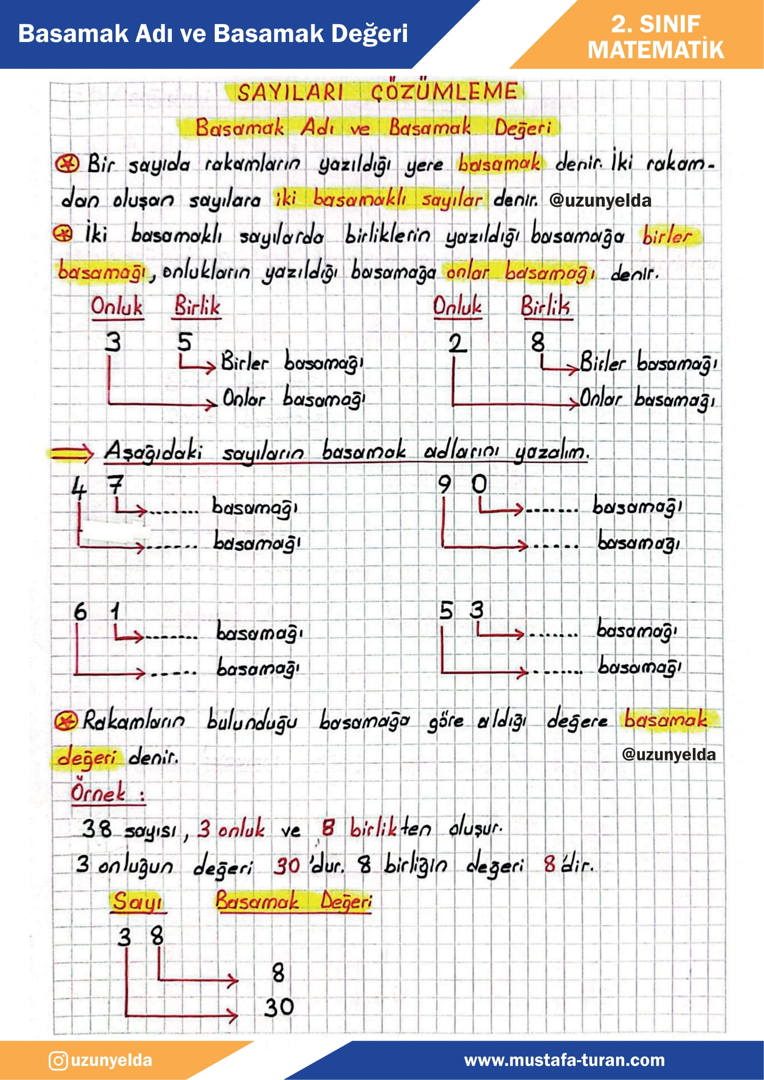 Basamak Adı ve Basamak Değeri
2. SINIF
MATEMATİK
SAYILARI ÇÖZÜMLEME
Basamak Adı ve Basamak Değeri
Bir sayıda rakamların yazıldığı yere basamak denir. İki rakam-
dan oluşan sayılara iki basamaklı sayılar denir. @uzunyelda
İki basamaklı sayılarda birliklerin yazıldığı basamağa birler
basamağı, onlukların yazıldığı basamağa onlar basamağı denir.
Onluk Birlik Onluk Birlik
3 5 2 8
Birler basamağı Birler basamağı
Onlar basamağı Onlar basamağı
Aşağıdaki sayıların basamak adlarını yazalım.
4 7 9 0
....... basamağı ....... basamağı
...... basamağı ..... basamağı
6 1 5 3
....... basamağı ....... basamağı
..... basamağı ....... basamağı
Rakamların bulunduğu basamağa göre aldığı değere basamak
değeri denir. @uzunyelda
Örnek :
38 sayısı, 3 onluk ve 8 birlikten oluşur.
3 onluğun değeri 30'dur. 8 birliğin değeri 8'dir.
Sayı Basamak Değeri
3 8
8
30
uzunyelda www.mustafa-turan.com